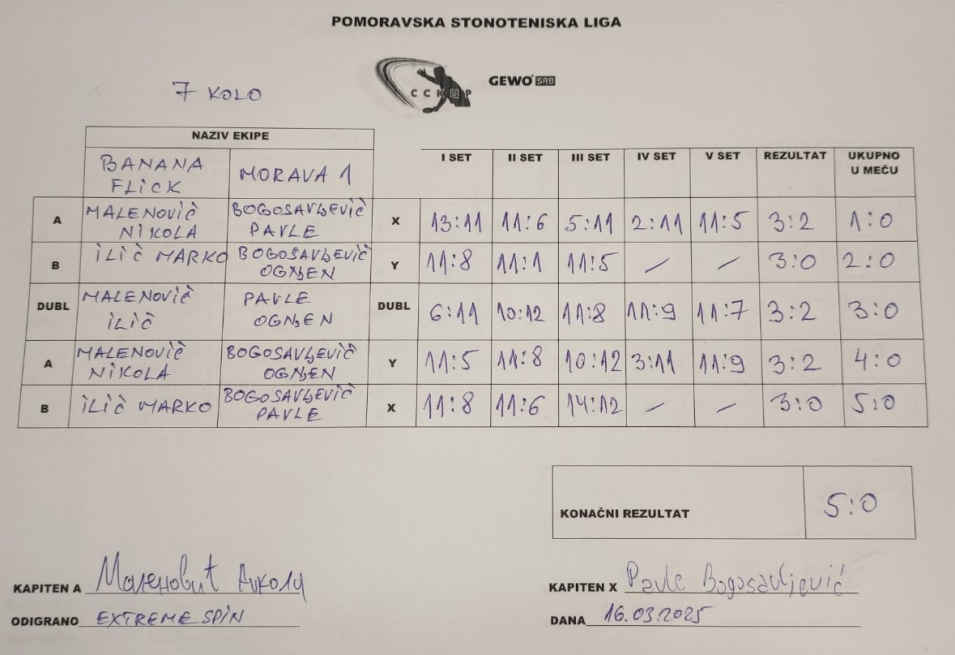 POMORAVSKA STONOTENISKA LIGA
7 KOLO
ССКЦР
GEWO SRB
NAZIV EKIPE
BANANA FLICK MORAVA 1 I SET II SET III SET IV SET V SET REZULTAT UKUPNO U MEČU
A MALENOVIČ NIKOLA BOGOSAVLJEVIČ PAVLE X 13:11 11:6 5:11 2:11 11:5 3:2 1:0
B ILIČ MARKO BOGOSAVLJEVIČ OGNJEN Y 11:8 11:1 11:5 / / 3:0 2:0
DUBL MALENOVIČ ILIČ PAVLE OGNJEN DUBL 6:11 10:12 11:8 11:9 11:7 3:2 3:0
A MALENOVIČ NIKOLA BOGOSAVLJEVIČ OGNJEN Y 11:5 11:8 10:12 3:11 11:9 3:2 4:0
B ILIČ MARKO BOGOSAVLJEVIČ PAVLE X 11:8 11:6 14:12 / / 3:0 5:0
KONAČNI REZULTAT 5:0
KAPITEN A Маленовић
KAPITEN X Pavle Bogosavljević
ODIGRANO EXTREME SPIN
DANA 16.03.2025